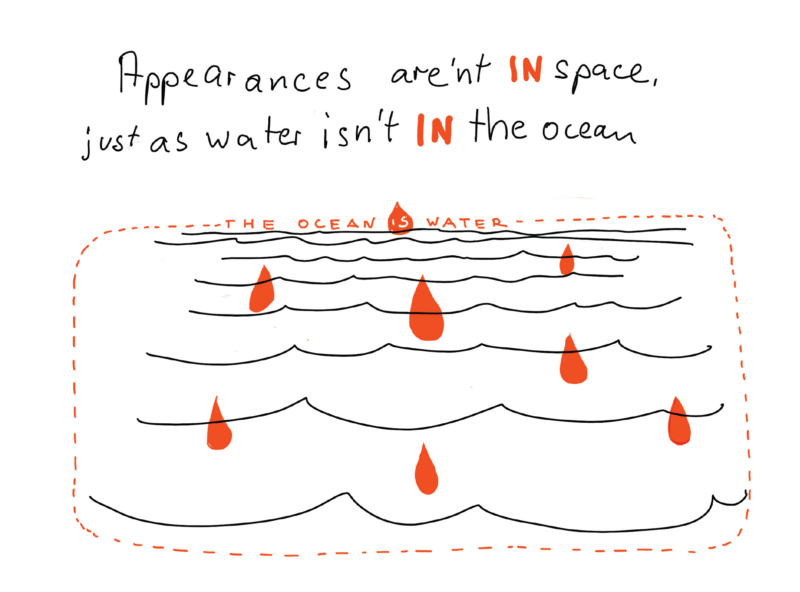 Appearances are'nt IN space,
just as water isn't IN the ocean
THE OCEAN IS WATER